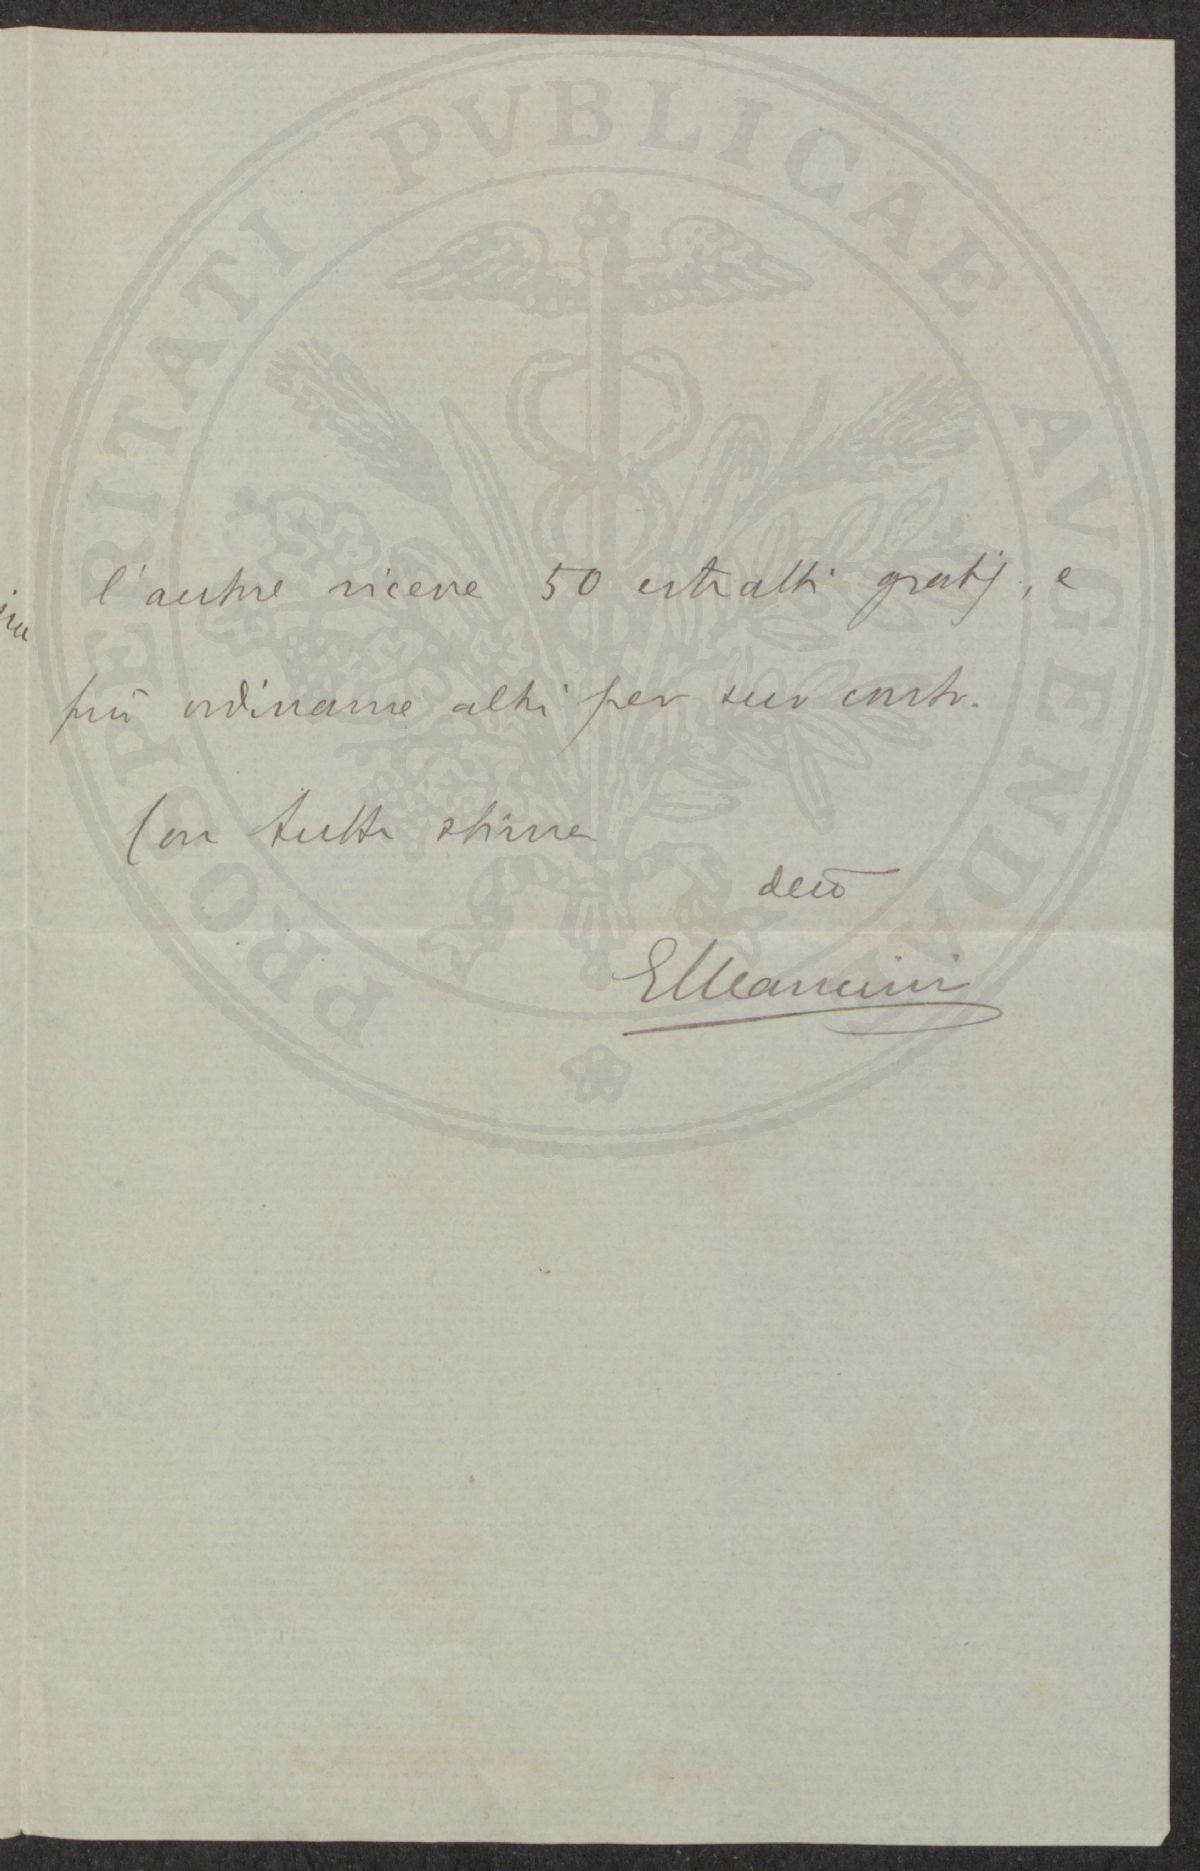 PROSPERITATI PVBLICAE AVGENDAE
l'autore riceve 50 estratti gratis, e
può ordinarne altri per suo conto.
Con tutta stima
devo
EMancini